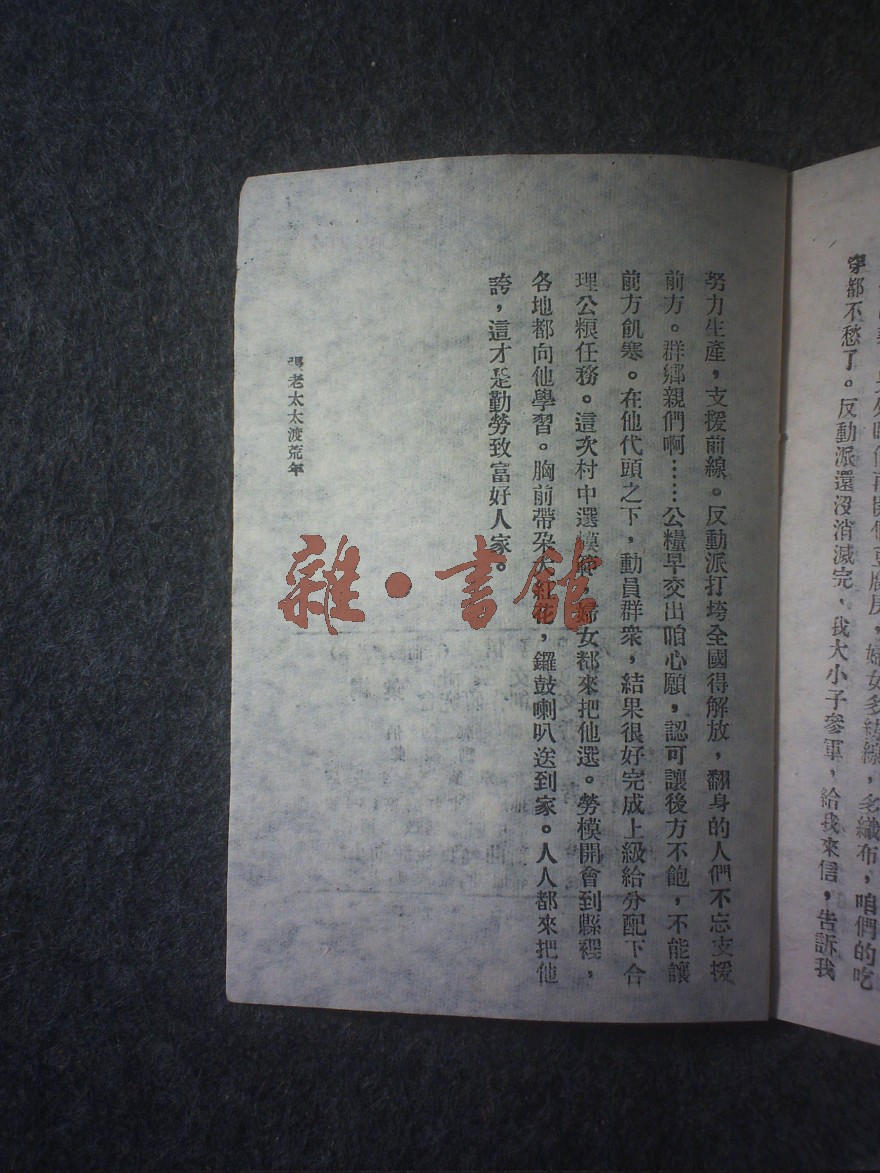 穿都不愁了。反動派還沒消滅完，我大小子參軍，給我來信，告訴我
努力生產，支援前線。反動派打垮全國得解放，翻身的人們不忘支援
前方。群鄉親們啊……公糧早交出咱心願，認可讓後方不飽，不能讓
前方飢寒。在他代頭之下，動員群衆，結果很好完成上級給分配下合
理公粮任務。這次村中選模範，婦女都來把他選。勞模開會到縣裡，
各地都向他學習。胸前帶朶大紅花，鑼鼓喇叭送到家。人人都來把他
誇，這才是勤勞致富好人家。
張老太太渡荒年
雜·書館